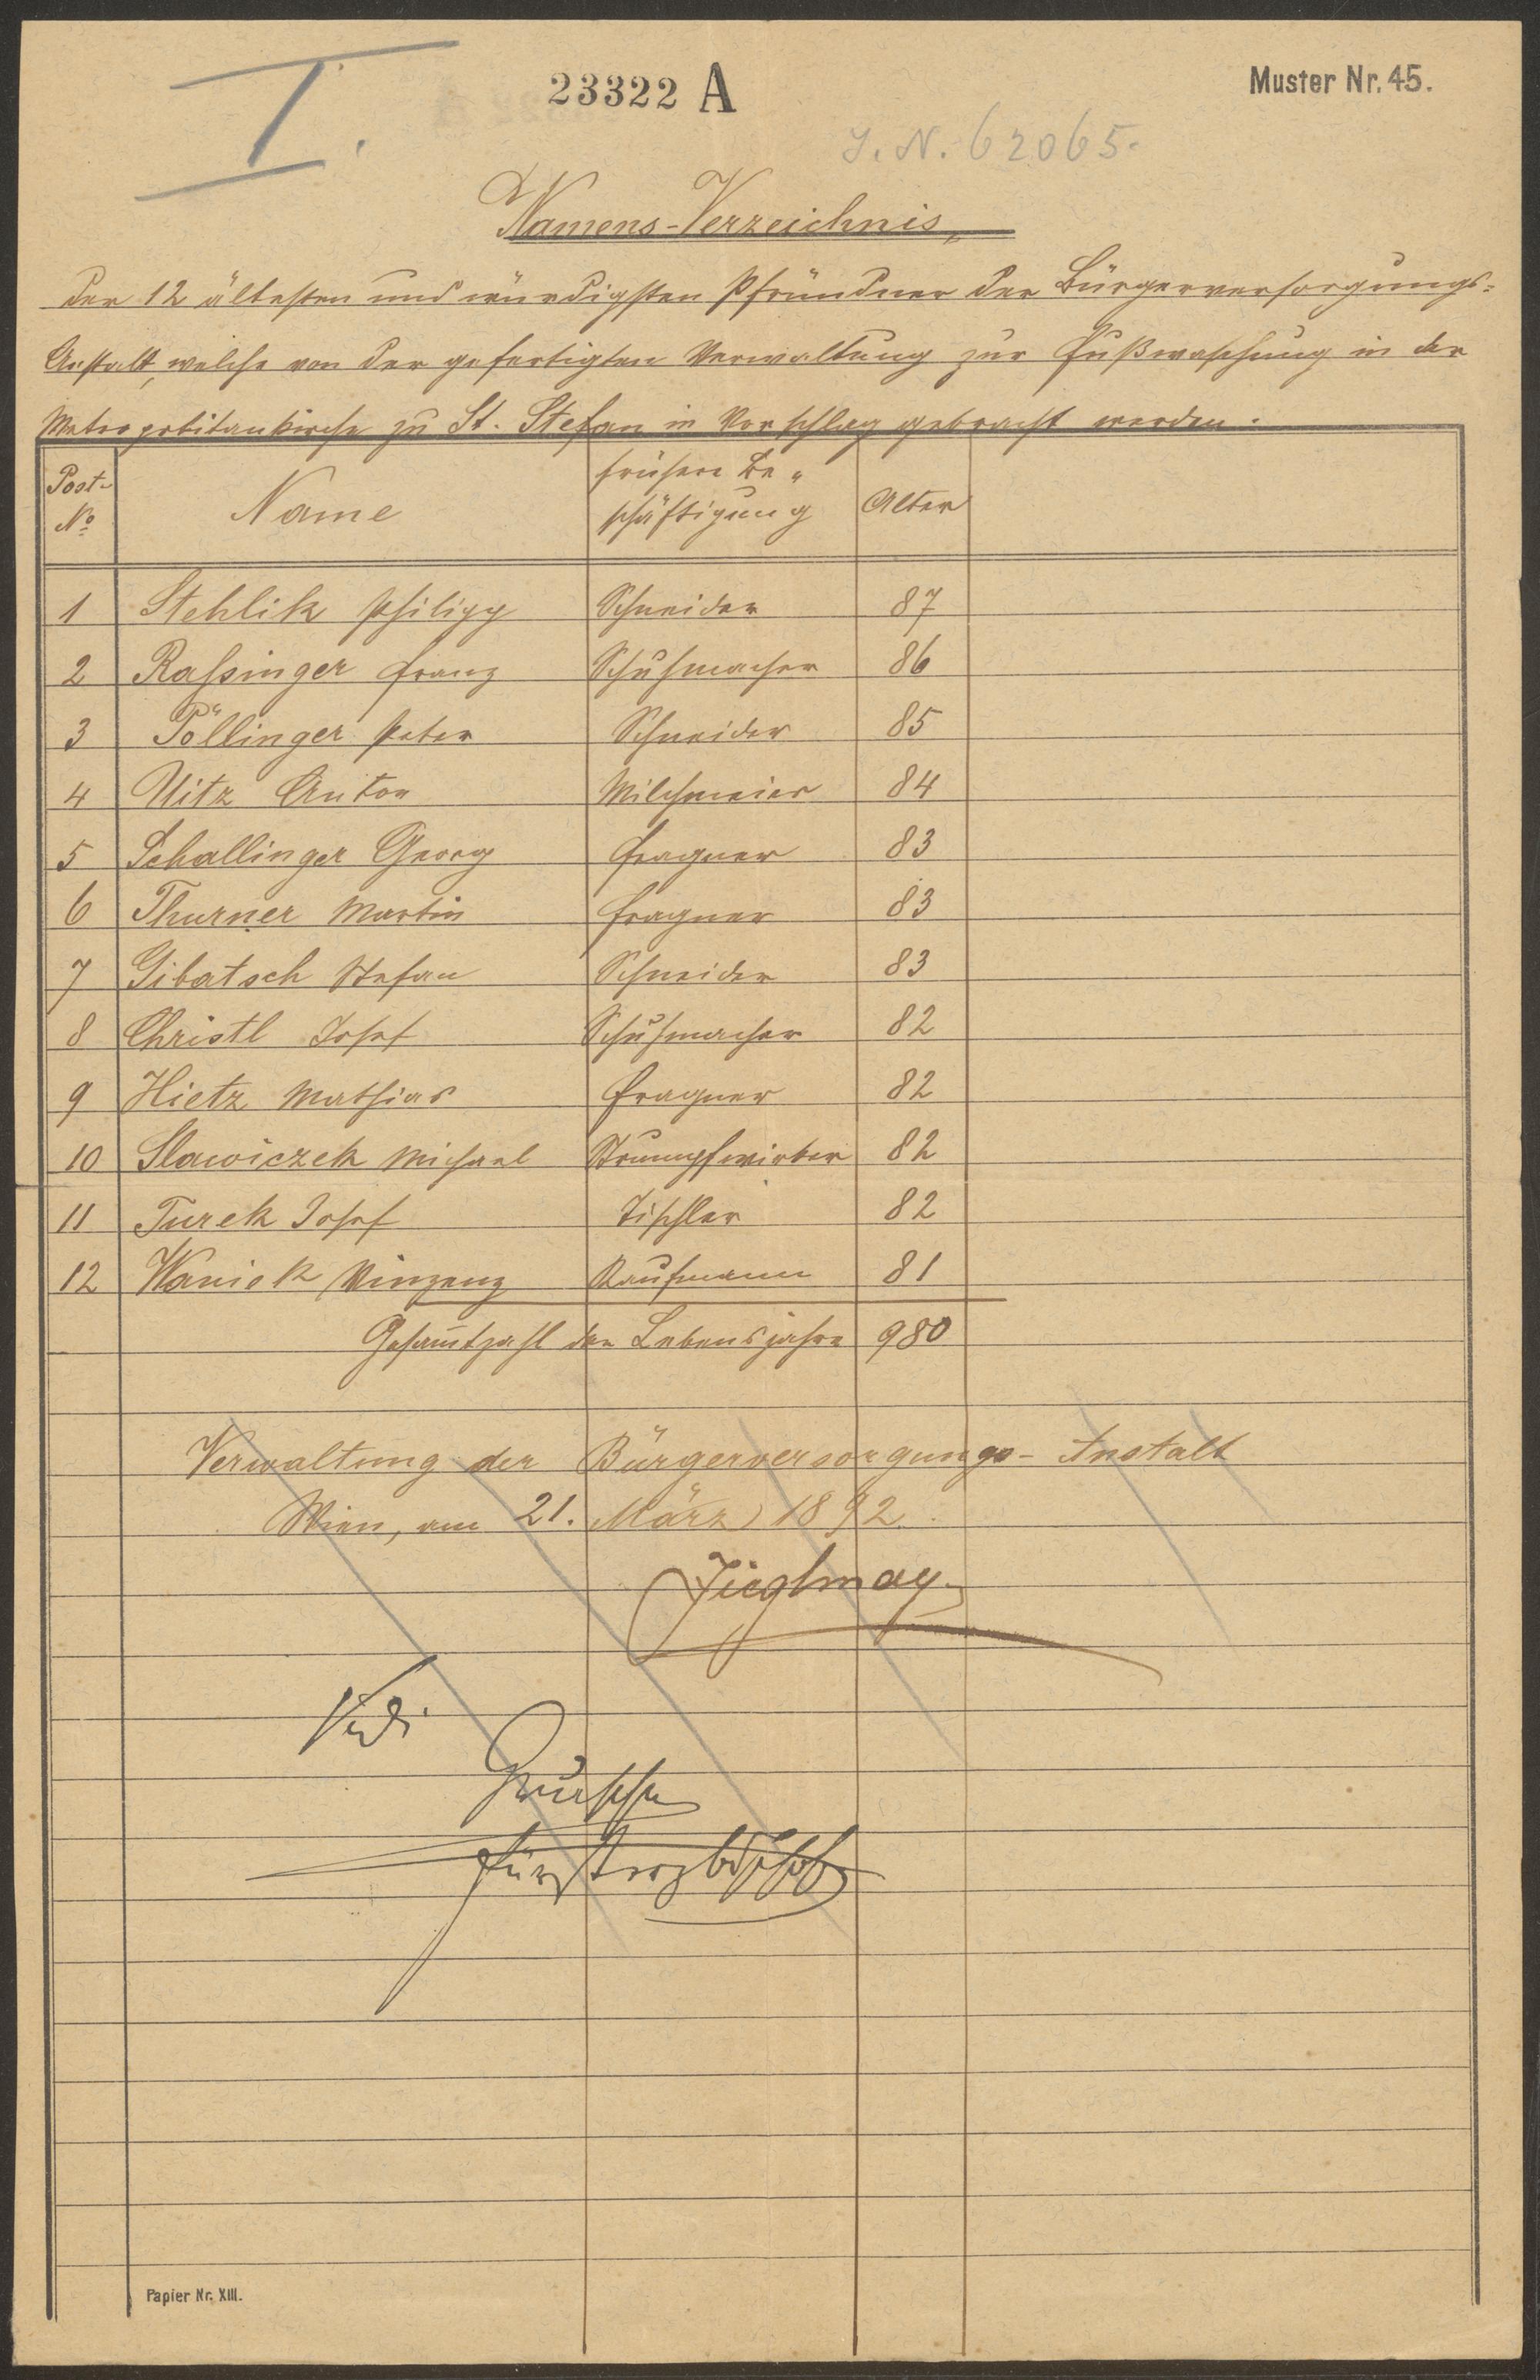 I.
23322 A
Muster Nr. 45.
J. N. 62065.
Namens-Verzeichnis,
der 12 ältesten und würdigsten Pfründner der Bürgerversorgungs-
Anstalt, welche von der gefertigten Verwaltung zur Fußwaschung in der
Metropolitankirche zu St. Stefan in Vorschlag gebracht werden.
Post- No Name frühere Be- schäftigung Alter
1 Stehlik Philipp Schneider 87
2 Raßinger Franz Schuhmacher 86
3 Pöllinger Peter Schneider 85
4 Uitz Anton Milchmeier 84
5 Schallinger Georg Fragner 83
6 Thurner Martin Fragner 83
7 Gibatsch Stefan Schneider 83
8 Christl Josef Schuhmacher 82
9 Hietz Mathias Fragner 82
10 Slawiczek Michael Strumpfwirker 82
11 Turek Josef Tischler 82
12 Waniek Vinzenz Kaufmann 81
Gesamtzahl der Lebensjahre 980
Verwaltung der Bürgerversorgungs-Anstalt
Wien, am 21. März 1892.
Zieglmay
Vidi
Gruscha
Fürsterzbischof
Papier Nr. XIII.